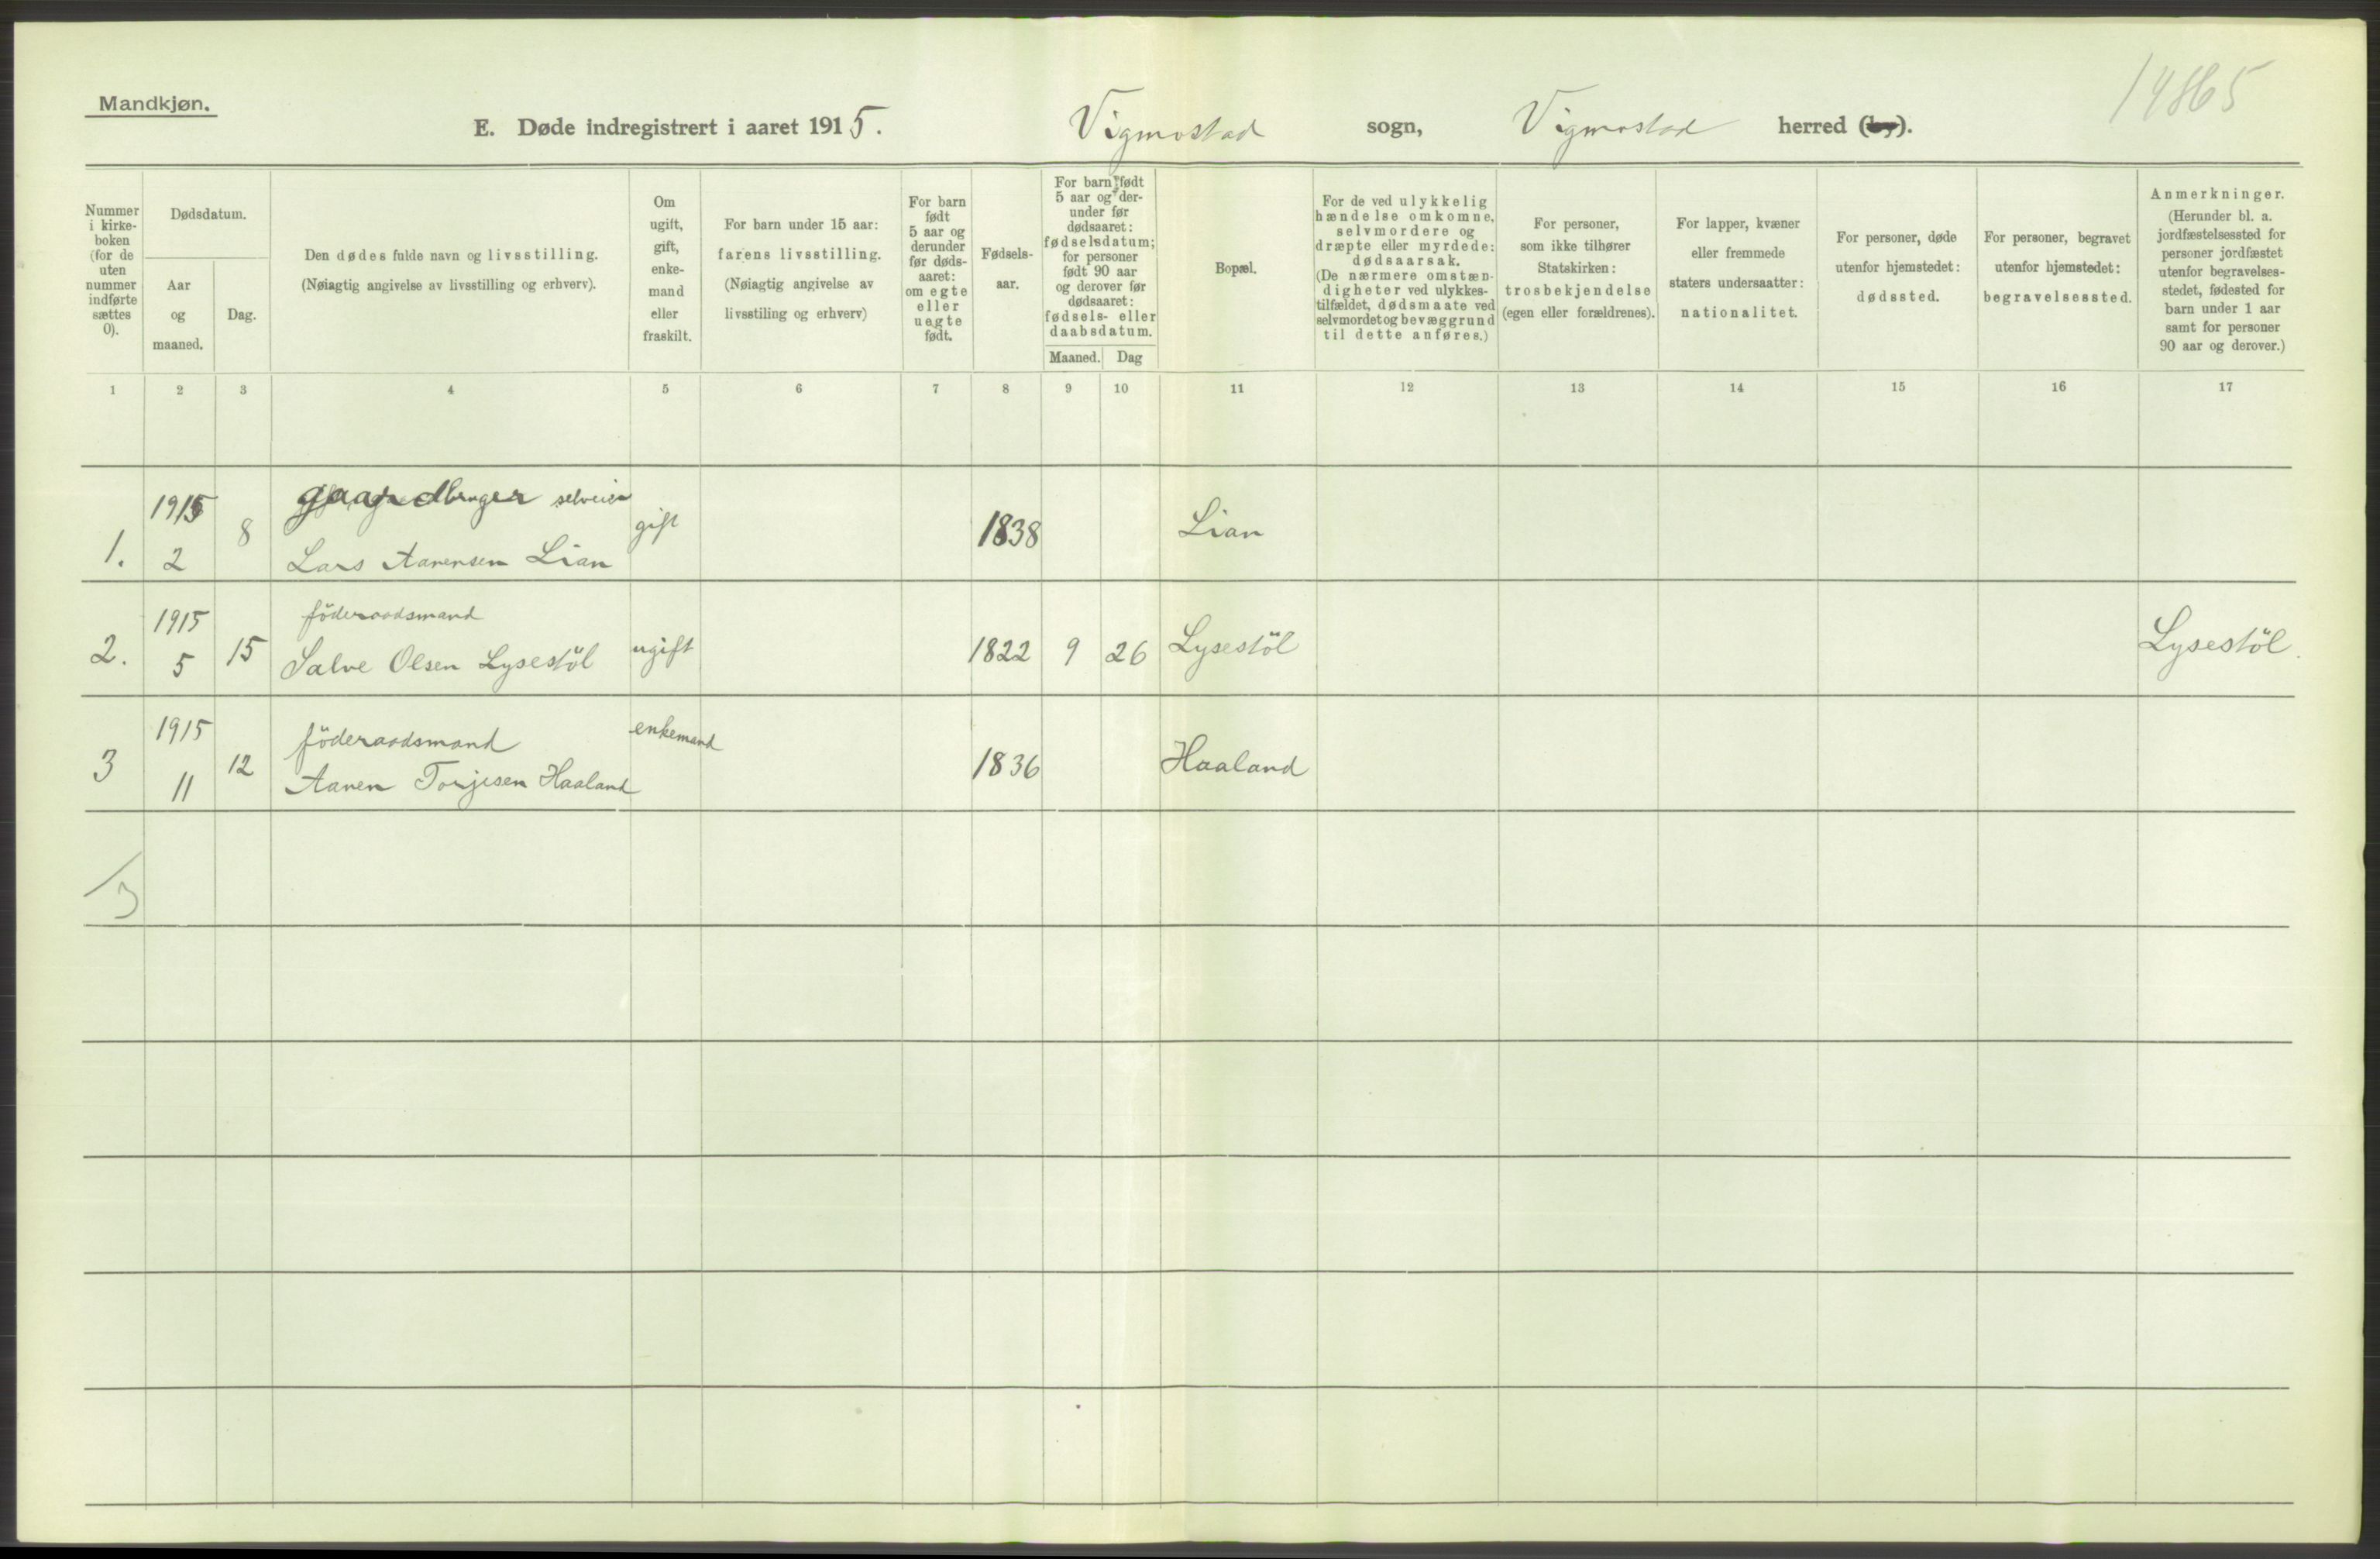 Mandkjøn.
14865
E. Døde indregistrert i aaret 1915. Vigmostad sogn, Vigmostad herred (by).
Nummer i kirke-boken (for de uten nummer indførte sættes 0).
Dødsdatum.
Aar og maaned.
Dag.
Den dødes fulde navn og livsstilling.
(Nøiagtig angivelse av livsstilling og erhverv).
Om ugift, gift, enke-mand eller fraskilt.
For barn under 15 aar: farens livsstilling.
(Nøiagtig angivelse av livsstiling og erhverv)
For barn født 5 aar og derunder før døds-aaret: om egte eller uegte født.
Fødsels-aar.
For barn født 5 aar og der-under før dødsaaret: fødselsdatum; for personer født 90 aar og derover før dødsaaret: fødsels- eller daabsdatum.
Maaned. Dag
Bopæl.
For de ved ulykkelig hændelse omkomne, selvmordere og dræpte eller myrdede: dødsaarsak.
(De nærmere omstæn-digheter ved ulykkes-tilfældet, dødsmaate ved selvmordet og bevæggrund til dette anføres.)
For personer, som ikke tilhører Statskirken: trosbekjendelse (egen eller forældrenes).
For lapper, kvæner eller fremmede staters undersaatter: nationalitet.
For personer, døde utenfor hjemstedet: dødssted.
For personer, begravet utenfor hjemstedet: begravelsessted.
Anmerkninger.
(Herunder bl. a. jordfæstelsessted for personer jordfæstet utenfor begravelses-stedet, fødested for barn under 1 aar samt for personer 90 aar og derover.)
1 2 3 4 5 6 7 8 9 10 11 12 13 14 15 16 17
1. 1915 2 8 gaardbruger selveier
Lars Aanensen Lian gift 1838 Lian
2. 1915 5 15 föderaadsmand
Salve Olsen Lysestöl ugift 1822 9 26 Lysestöl Lysestöl.
3 1915 11 12 föderaadsmand
Aanen Torjesen Haaland enkemand 1836 Haaland
/3